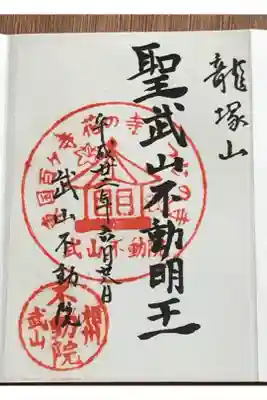 龍塚山
聖武山不動明王
平成廿一年六月廿八日
武山不動院
東国花の寺百ヶ寺
武山不動院
相州
武山
不動院